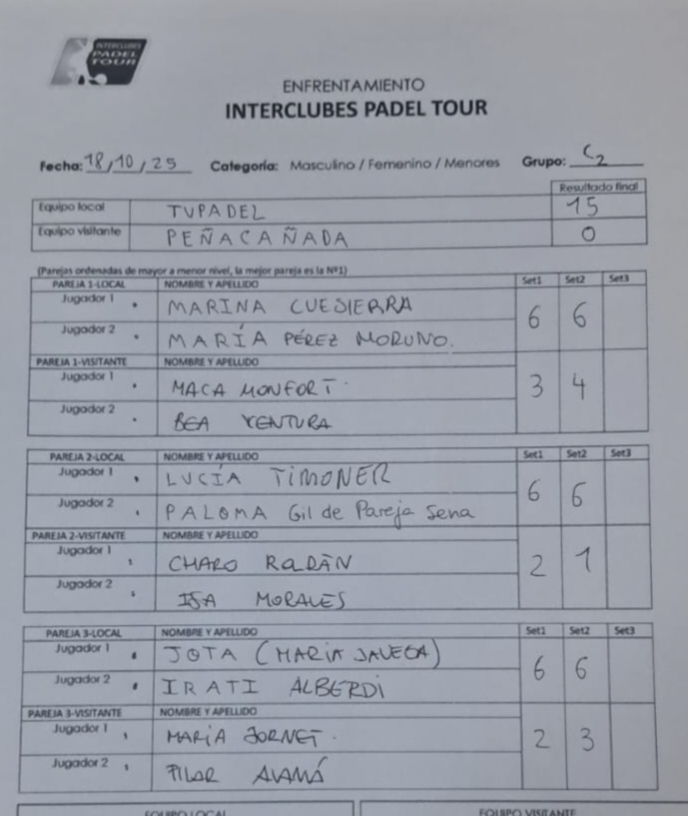 INTERCLUBES
PADEL
TOUR
ENFRENTAMIENTO
INTERCLUBES PADEL TOUR
Fecha: 18/10/25 Categoría: Masculino / Femenino / Menores Grupo: C2
Resultado final
Equipo local TUPADEL 15
Equipo visitante PEÑACAÑADA 0
(Parejas ordenadas de mayor a menor nivel, la mejor pareja es la Nº1)
PAREJA 1-LOCAL NOMBRE Y APELLIDO Set1 Set2 Set3
Jugador 1 MARINA 6 6
Jugador 2 MARÍA PÉREZ MORUNO.
PAREJA 1-VISITANTE NOMBRE Y APELLIDO
Jugador 1 MACA MONFORT 3 4
Jugador 2 BEA VENTURA
PAREJA 2-LOCAL NOMBRE Y APELLIDO Set1 Set2 Set3
Jugador 1 LUCÍA TIMONER 6 6
Jugador 2 PALOMA Gil de Pareja Sena
PAREJA 2-VISITANTE NOMBRE Y APELLIDO
Jugador 1 CHARO 2 1
Jugador 2 ISA MORALES
PAREJA 3-LOCAL NOMBRE Y APELLIDO Set1 Set2 Set3
Jugador 1 JOTA (MARIA 6 6
Jugador 2 IRATI ALBERDI
PAREJA 3-VISITANTE NOMBRE Y APELLIDO
Jugador 1 MARÍA JORNET 2 3
Jugador 2 PILAR
EQUIPO LOCAL EQUIPO VISITANTE